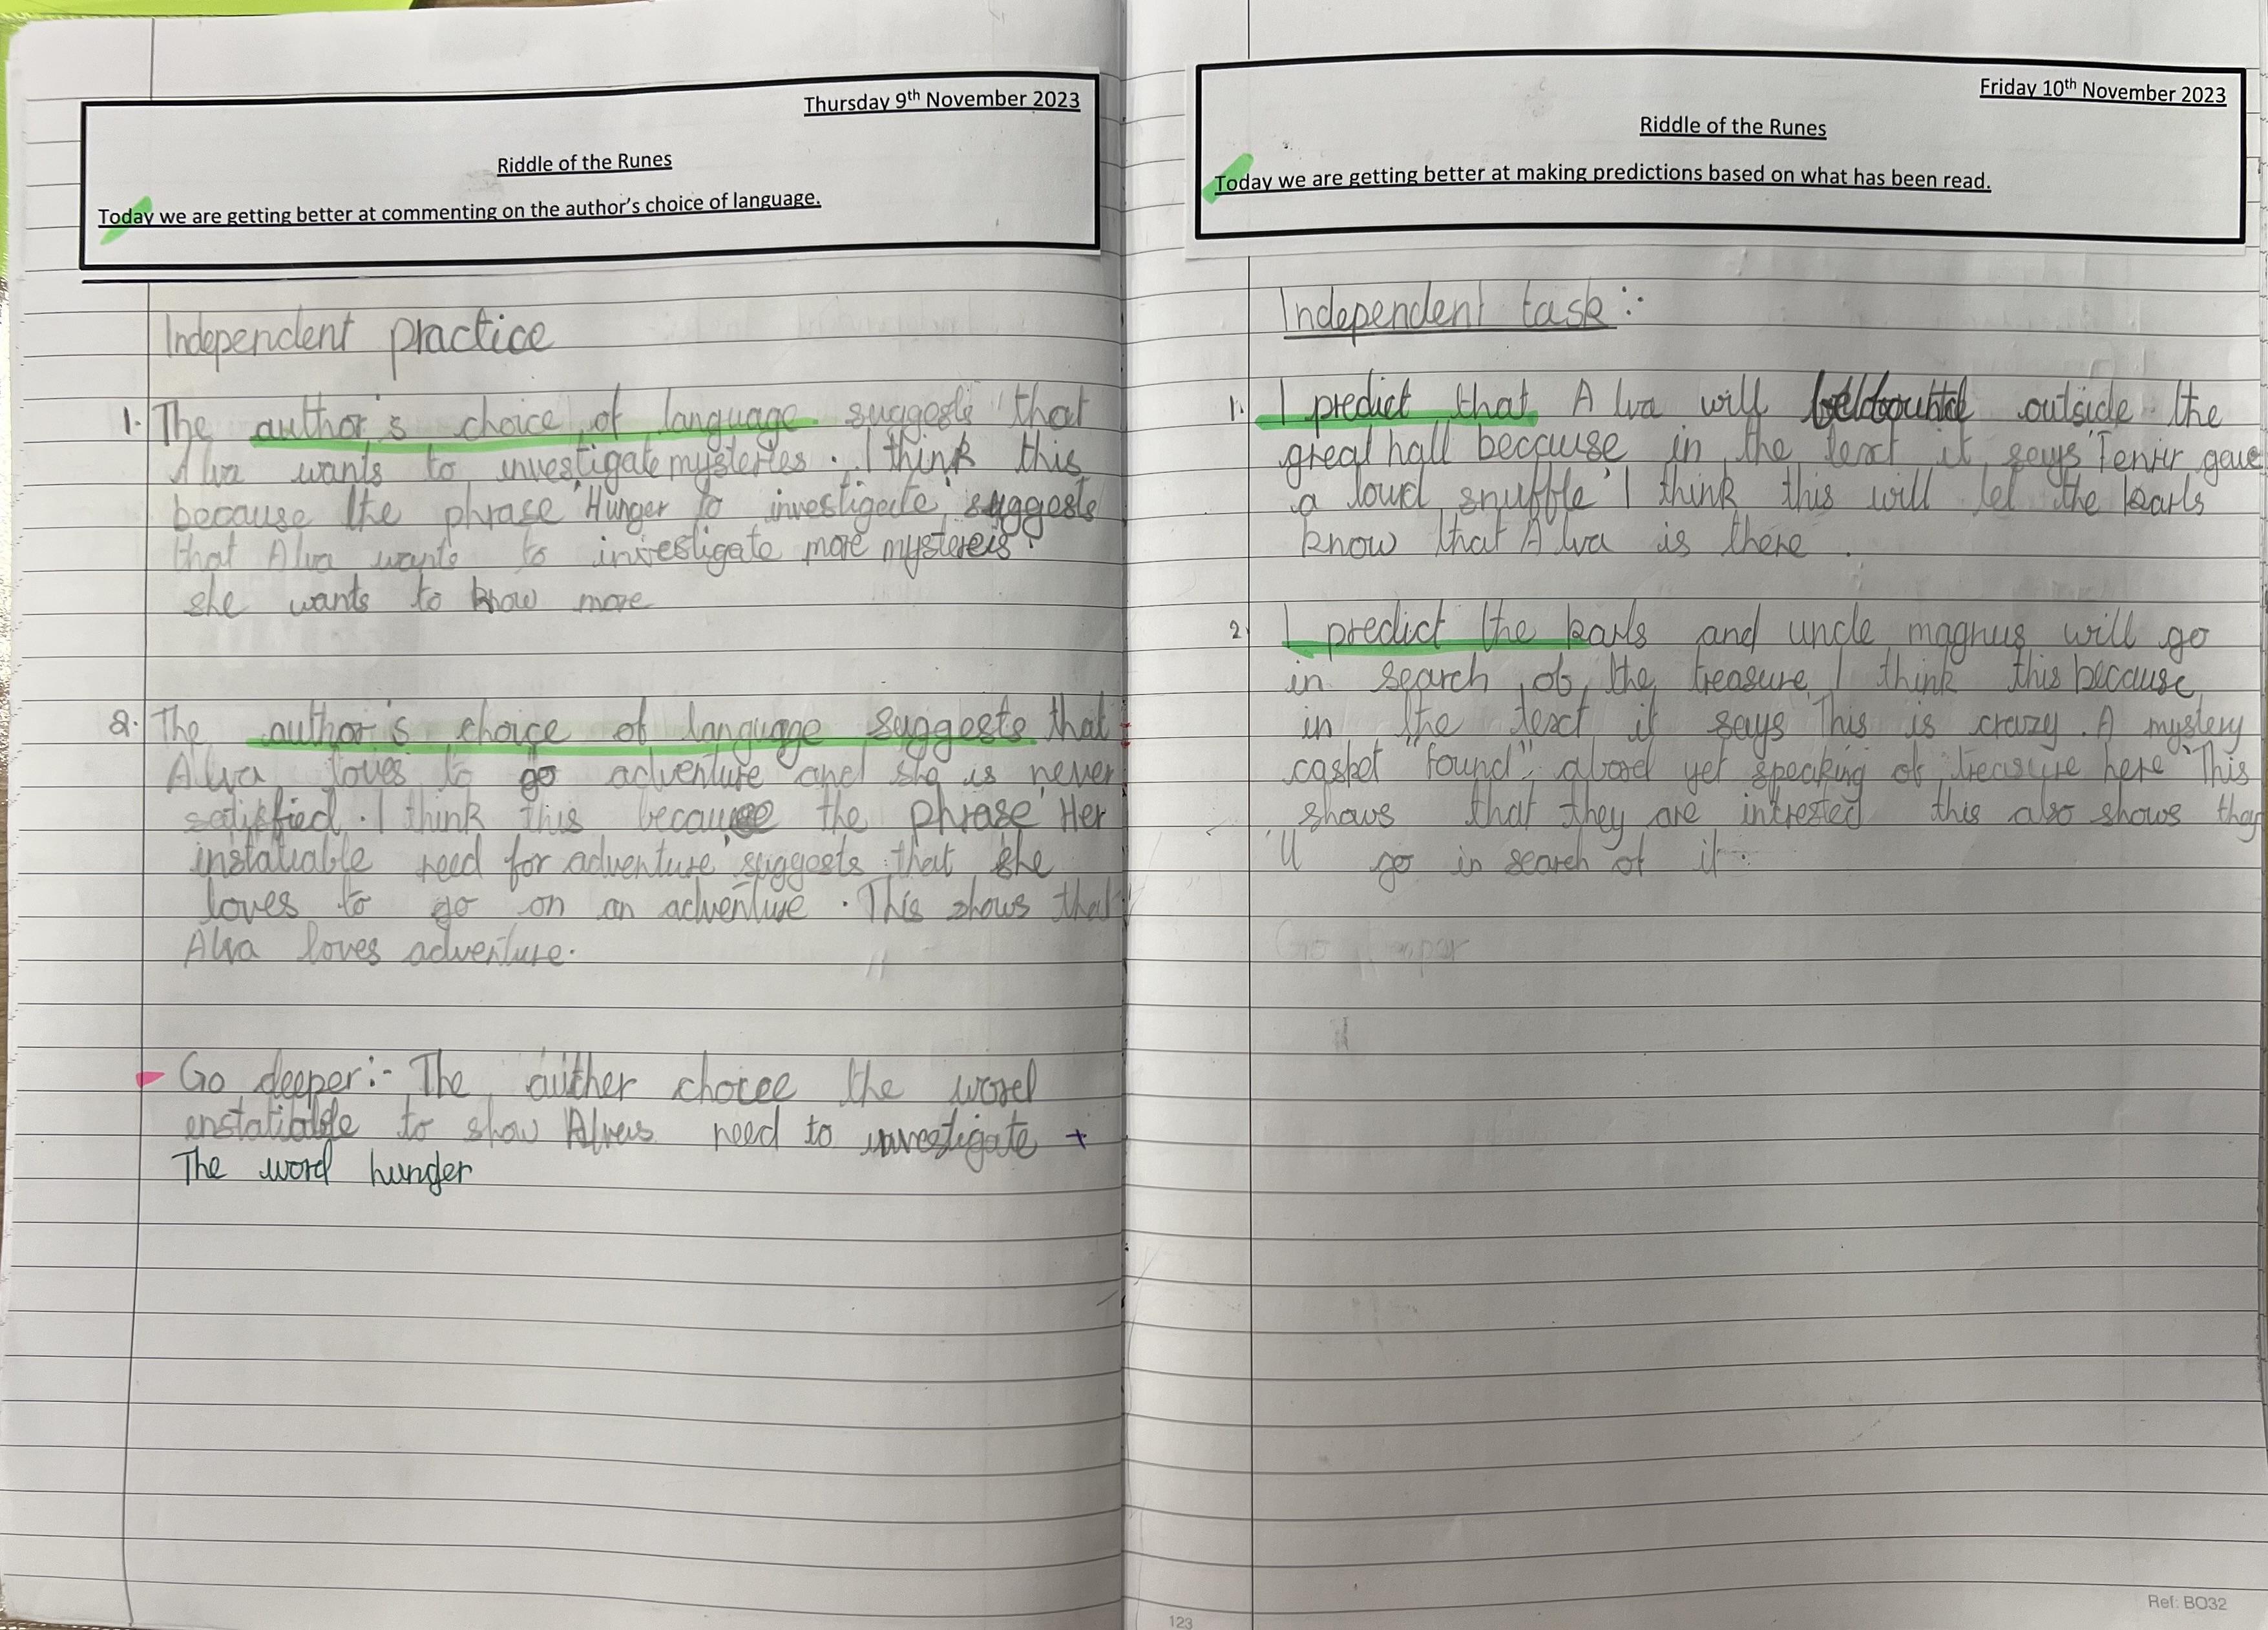 Thursday 9th November 2023
Riddle of the Runes
Today we are getting better at commenting on the author's choice of language.
Independent practice
1. The author's choice of language suggests that
Alva wants to investigate mysteries. I think this
because the phrase 'Hunger to investigate' suggests
that Alva wants to investigate more mystereis.
she wants to know more
2. The author's choice of language suggests that
Alva loves to go adventure and she is never
satisfied. I think this because the phrase 'Her
instatiable need for adventure' suggests that she
loves to go on an adventure. This shows that
Alva loves adventure.
Go deeper:- The auther choice the word
enstatiable to show Alvas need to investigate +
The word hunger
Friday 10th November 2023
Riddle of the Runes
Today we are getting better at making predictions based on what has been read.
Independent task:-
1. I predict that Alva will outside the
great hall because in the text it says 'Fenrir gave
a loud snuffle' I think this will let the karls
know that Alva is there.
2. I predict the karls and uncle magnus will go
in search of the treasure I think this because
in the text it says 'This is crazy. A mystery
casket "found" abord yet speaking of treasure here' This
shows that they are intrested this also shows they
'll go in search of it.
Go
123
Ref: BO32